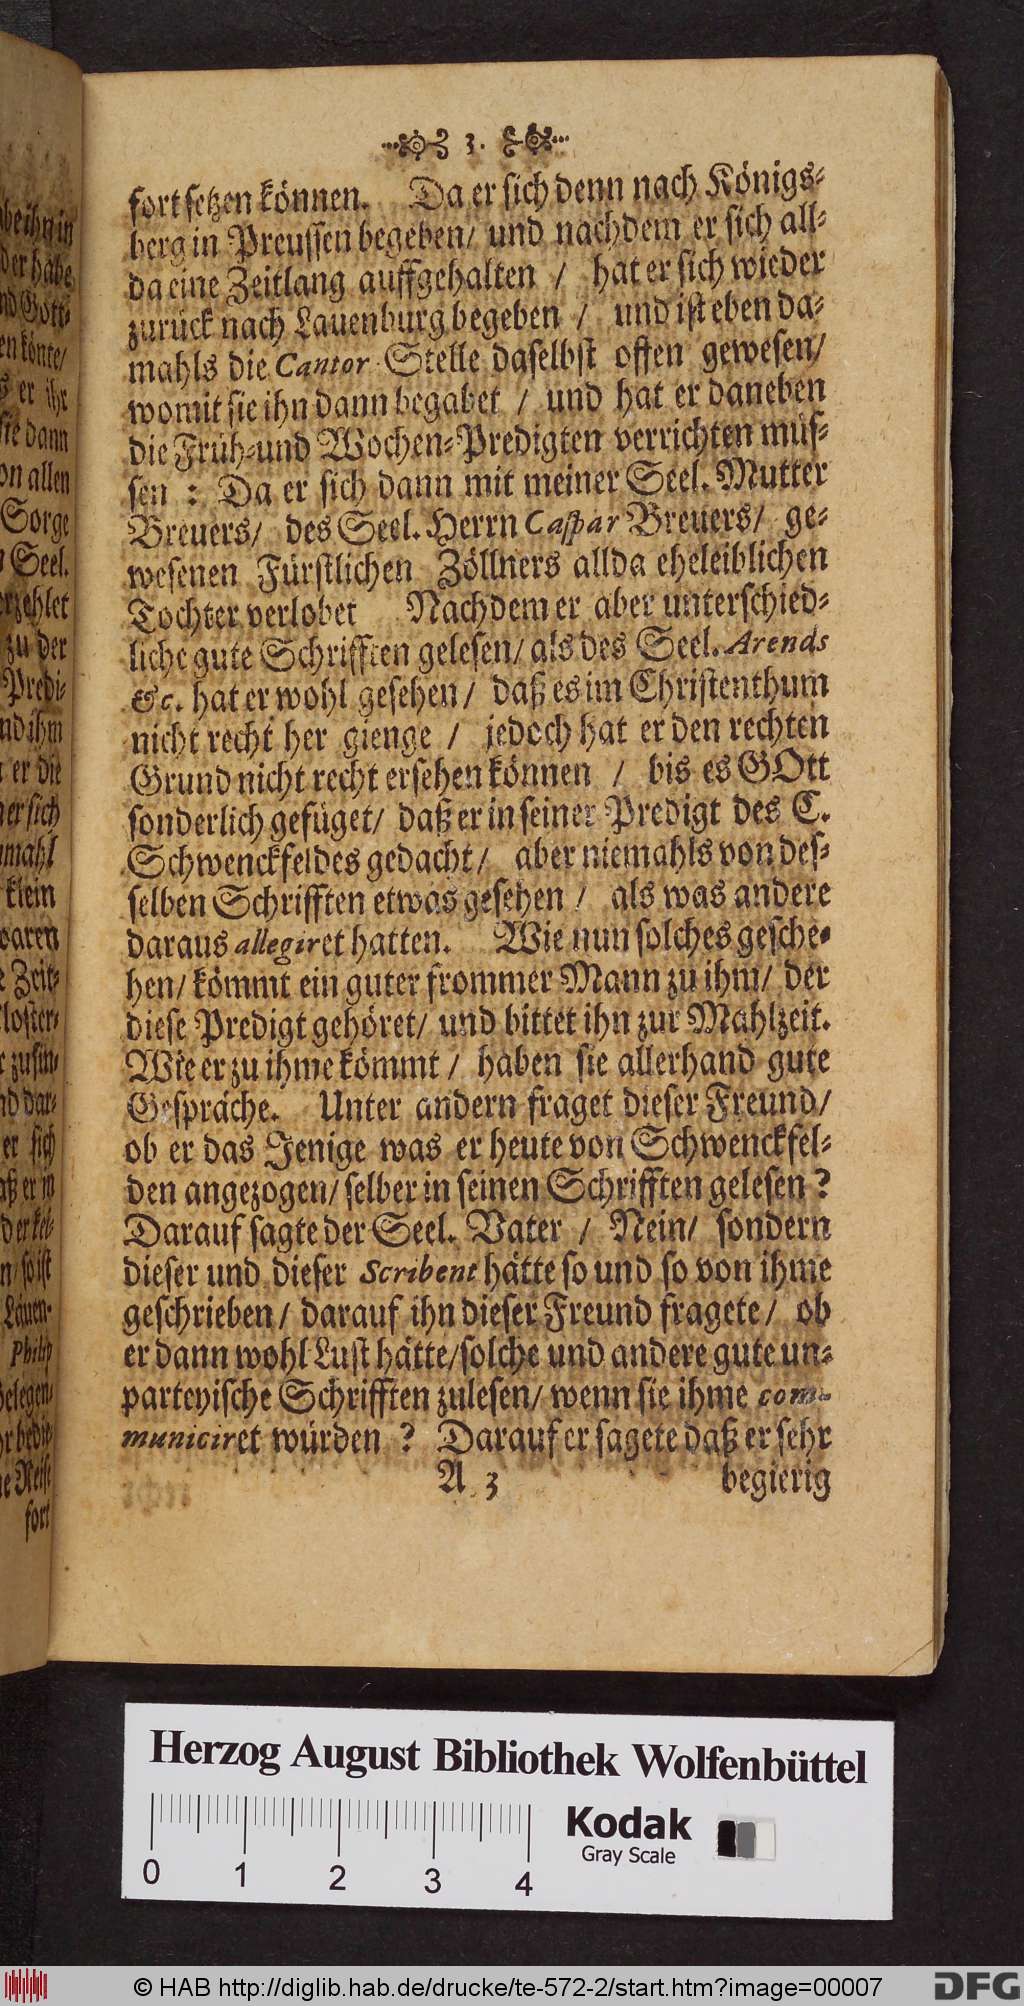 3.
fortsetzen können. Da er sich denn nach Königs-
berg in Preussen begeben/ und nachdem er sich all-
da eine Zeitlang auffgehalten / hat er sich wieder
zurück nach Lauenburg begeben / und ist eben da-
mahls die Cantor Stelle daselbst offen gewesen/
womit sie ihn dann begabet / und hat er daneben
die Früh- und Wochen-Predigten verrichten müs-
sen : Da er sich dann mit meiner Seel. Mutter
Breuers/ des Seel. Herrn Caspar Breuers/ ge-
wesenen Fürstlichen Zöllners allda eheleiblichen
Tochter verlobet Nachdem er aber unterschied-
liche gute Schrifften gelesen/ als des Seel. Arends
&c. hat er wohl gesehen/ daß es im Christenthum
nicht recht her gienge / jedoch hat er den rechten
Grund nicht recht ersehen können / bis es GOtt
sonderlich gefüget/ daß er in seiner Predigt des C.
Schwenckfeldes gedacht/ aber niemahls von des-
selben Schrifften etwas gesehen / als was andere
daraus allegiret hatten. Wie nun solches gesche-
hen/ kömmt ein guter frommer Mann zu ihm/ der
diese Predigt gehöret/ und bittet ihn zur Mahlzeit.
Wie er zu ihme kömmt / haben sie allerhand gute
Gespräche. Unter andern fraget dieser Freund/
ob er das Jenige was er heute von Schwenckfel-
den angezogen/ selber in seinen Schrifften gelesen?
Darauf sagte der Seel. Vater / Nein/ sondern
dieser und dieser Scribent hätte so und so von ihme
geschrieben/ darauf ihn dieser Freund fragete/ ob
er dann wohl Lust hätte/ solche und andere gute un-
parteyische Schrifften zulesen/ wenn sie ihme com-
municiret würden ? Darauf er sagete daß er sehr
A 3 begierig
der habe
en könte/
er ihr
dann
on allen
Sorge
Seel.
erzehlet
zu der
Predi-
nd ihm
er die
er sich
mahl
klein
waren
Zeit-
er sich
Philip
fort
Herzog August Bibliothek Wolfenbüttel
0 1 2 3 4
Kodak
Gray Scale
© HAB http://diglib.hab.de/drucke/te-572-2/start.htm?image=00007
DFG